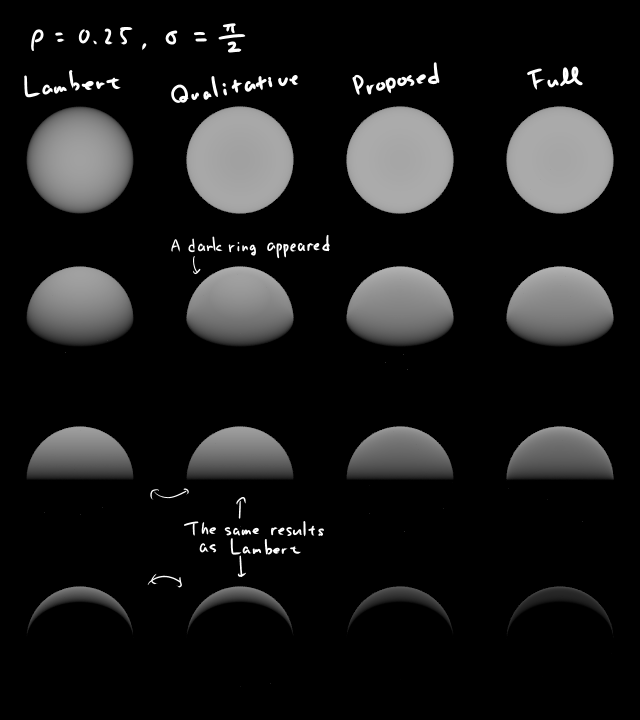 ρ = 0.25, σ = π/2
Lambert Qualitative Proposed Full
A dark ring appeared
The same results
as Lambert